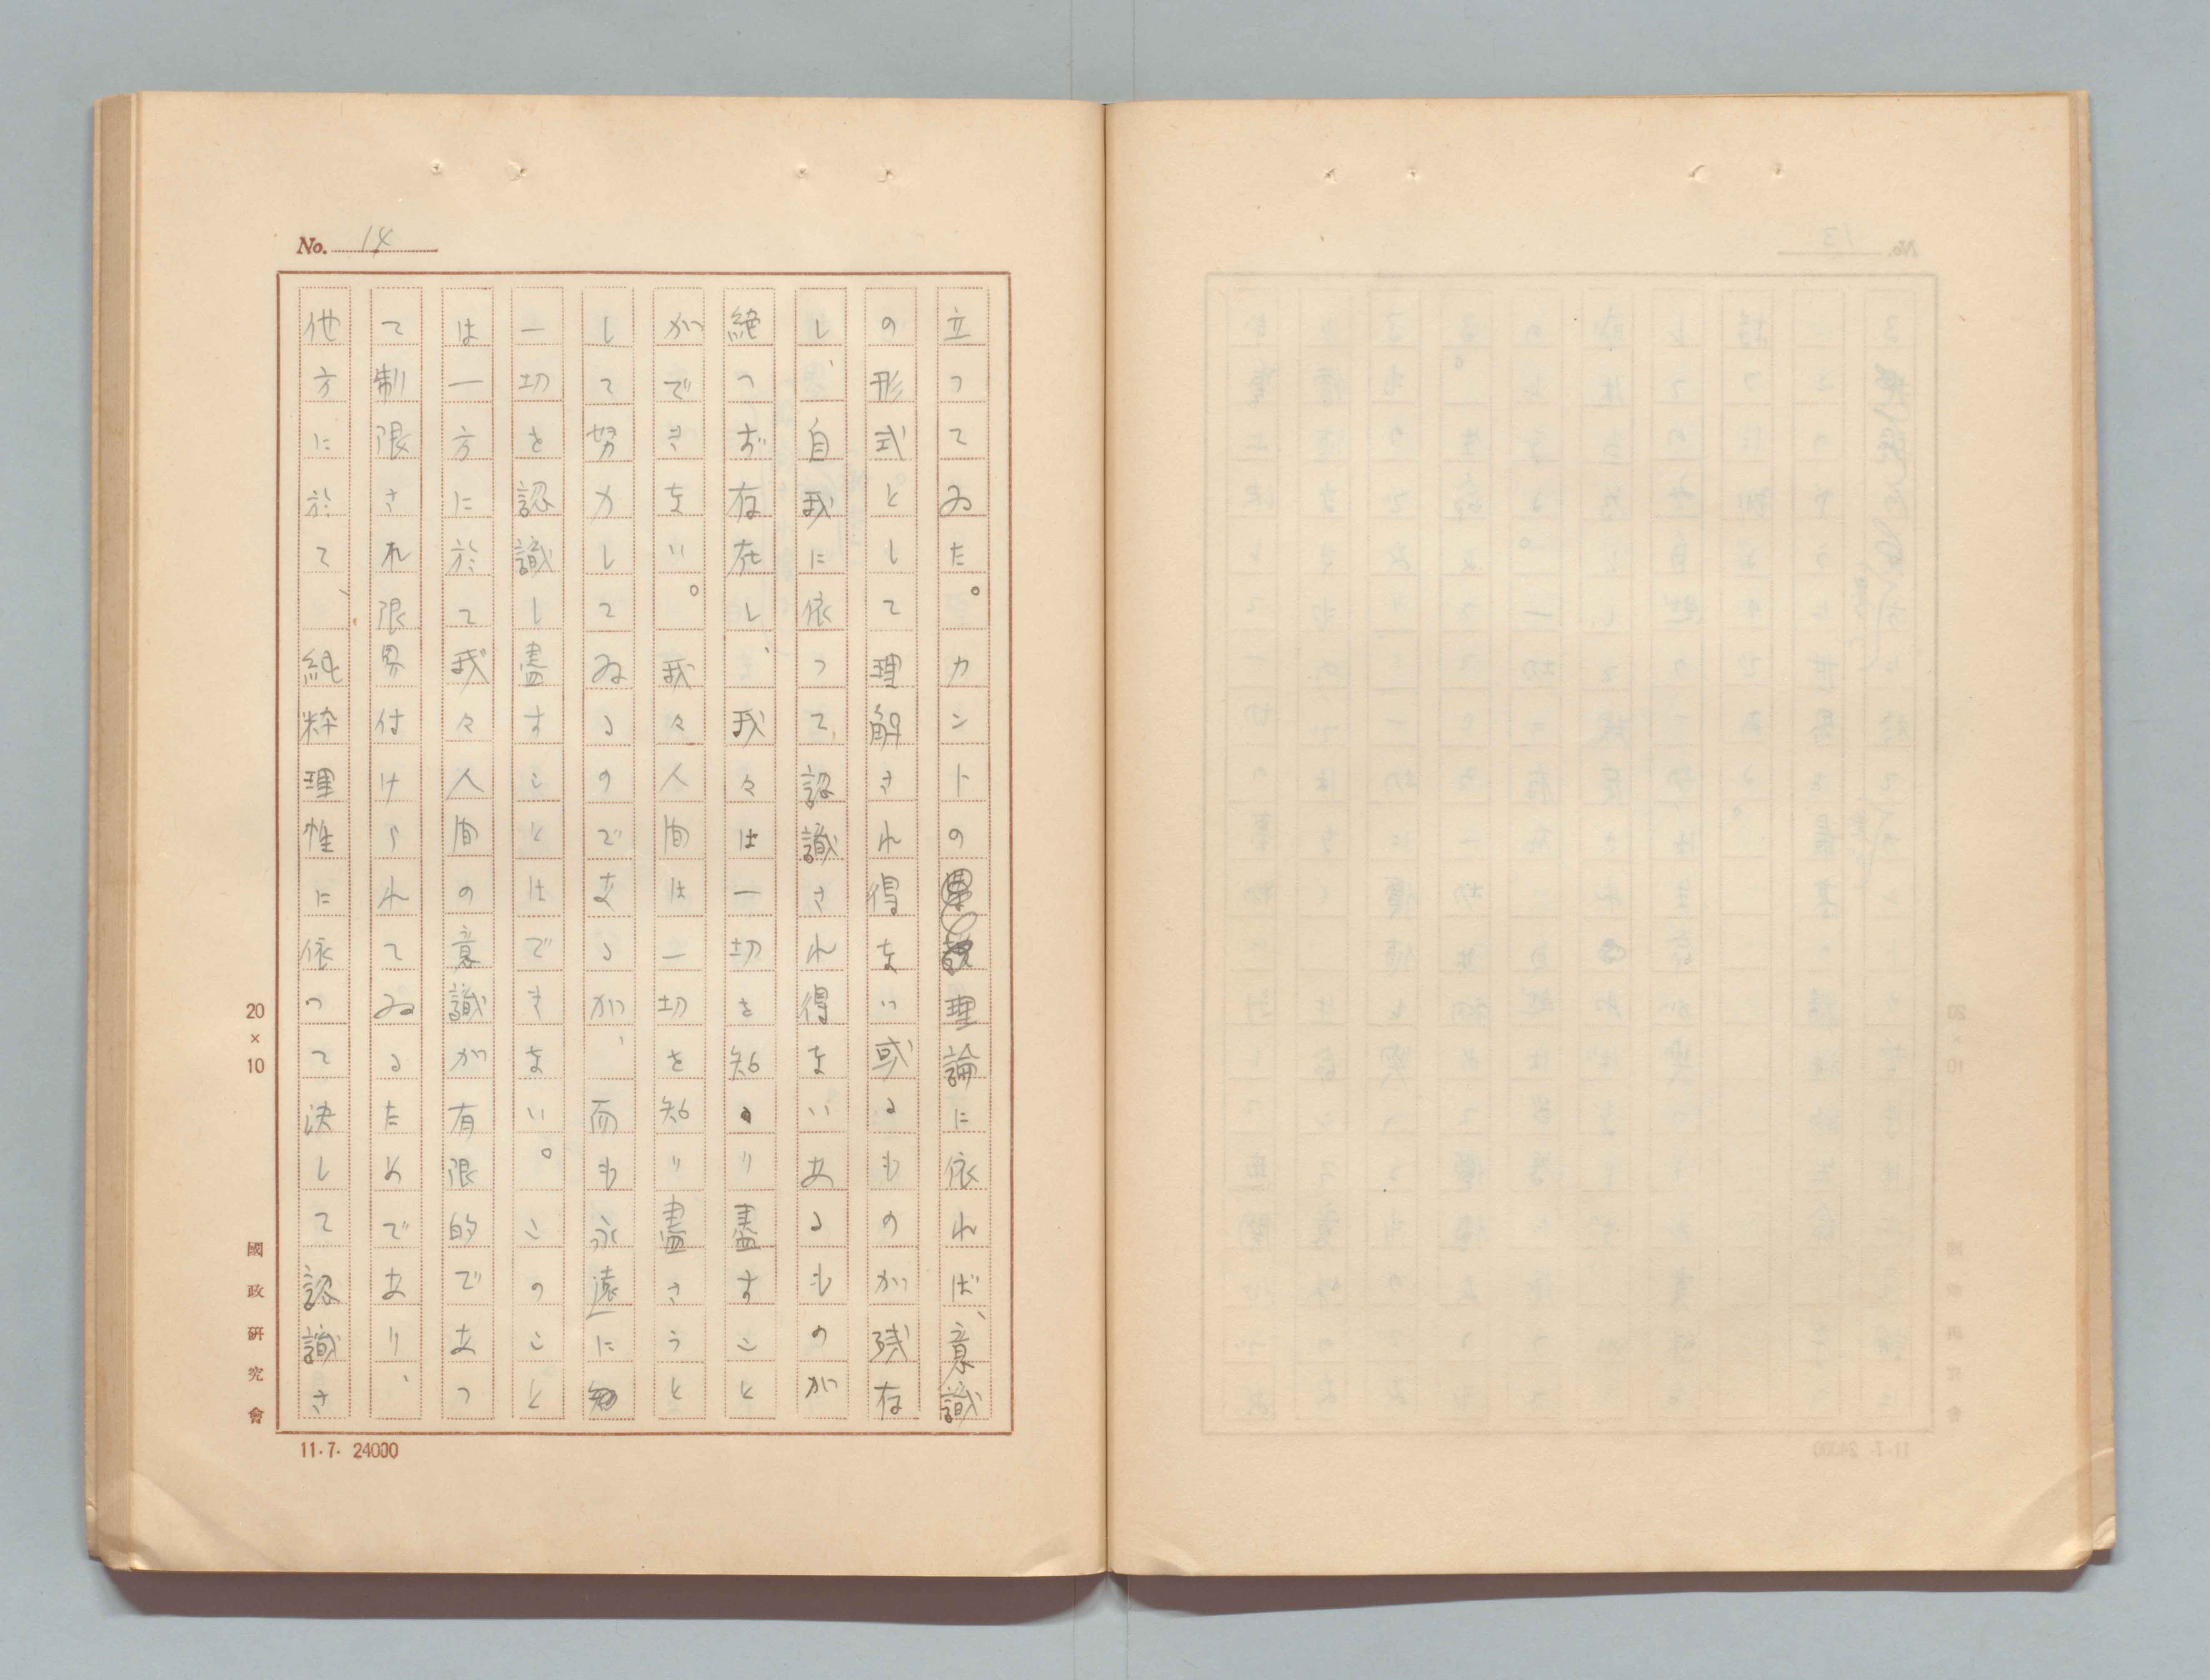 No. 14
立つてゐた。カントの理論に依れば、意識
の形式として理解され得ない或るものが残存
し、自我に依つて認識され得ないあるものが
絶つず存在し、我々は一切を知り盡すこと
ができない。我々人間は一切を知り盡さうと
して努力してゐるのであるが、而も永遠に
一切を認識し盡すことはできない。このこと
は一方に於て我々人間の意識が有限的であつ
て制限され限界付けられてゐるためであり、
他方に於て、純粋理性に依つて決して認識さ
20×10
國政研究會
11.7. 24000